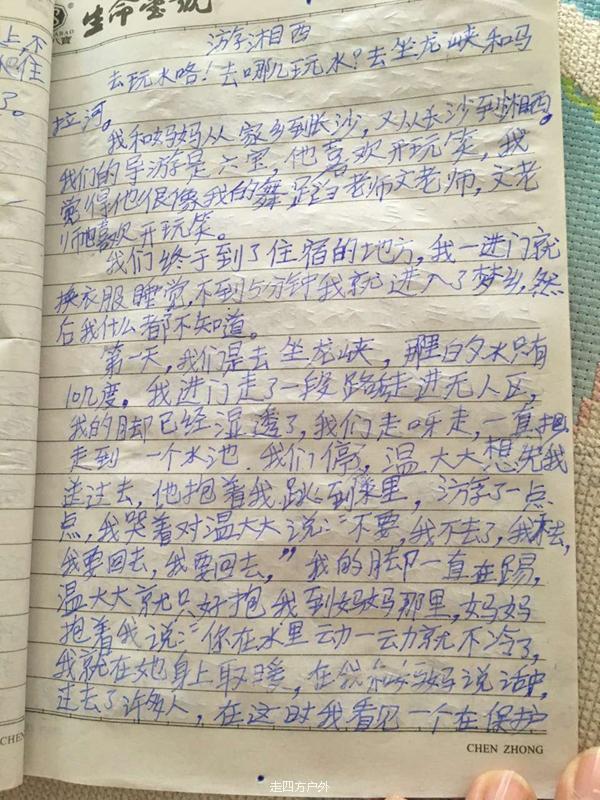 生命壹號
上，不
住
了。
游学湘西
去玩水咯！去哪儿玩水？去坐龙峡和吗
拉河。
我和妈妈从家乡到长沙，又从长沙到湘西。
我们的导游是六宝，他喜欢开玩笑，我
觉得他很像我的舞蹈老师文老师，文老
师也喜欢开玩笑。
我们终于到了住宿的地方，我一进门就
换衣服睡觉，不到5分钟我就进入了梦乡，然
后我什么都不知道。
第一天，我们是去坐龙峡，那里白夕水只有
10几度。我进门走了一段路走进无人区，
我的脚已经湿透了，我们走呀走，一直
走到一个水池．我们停了，温大大想先我
送过去，他抱着我跳到里，游了一点
点，我哭着对温大大说：“不要，我不去了，我不去，
我要回去，我要回去，”我的脚一直在踢，
温大大就只好抱我到妈妈那里，妈妈
抱着我说：“你在水里动一动就不冷了，
我就在她身上取暖，在我和妈妈说话中，
过去了许多人，在这时我看见一个在保护
CHEN ZHONG
走四方户外